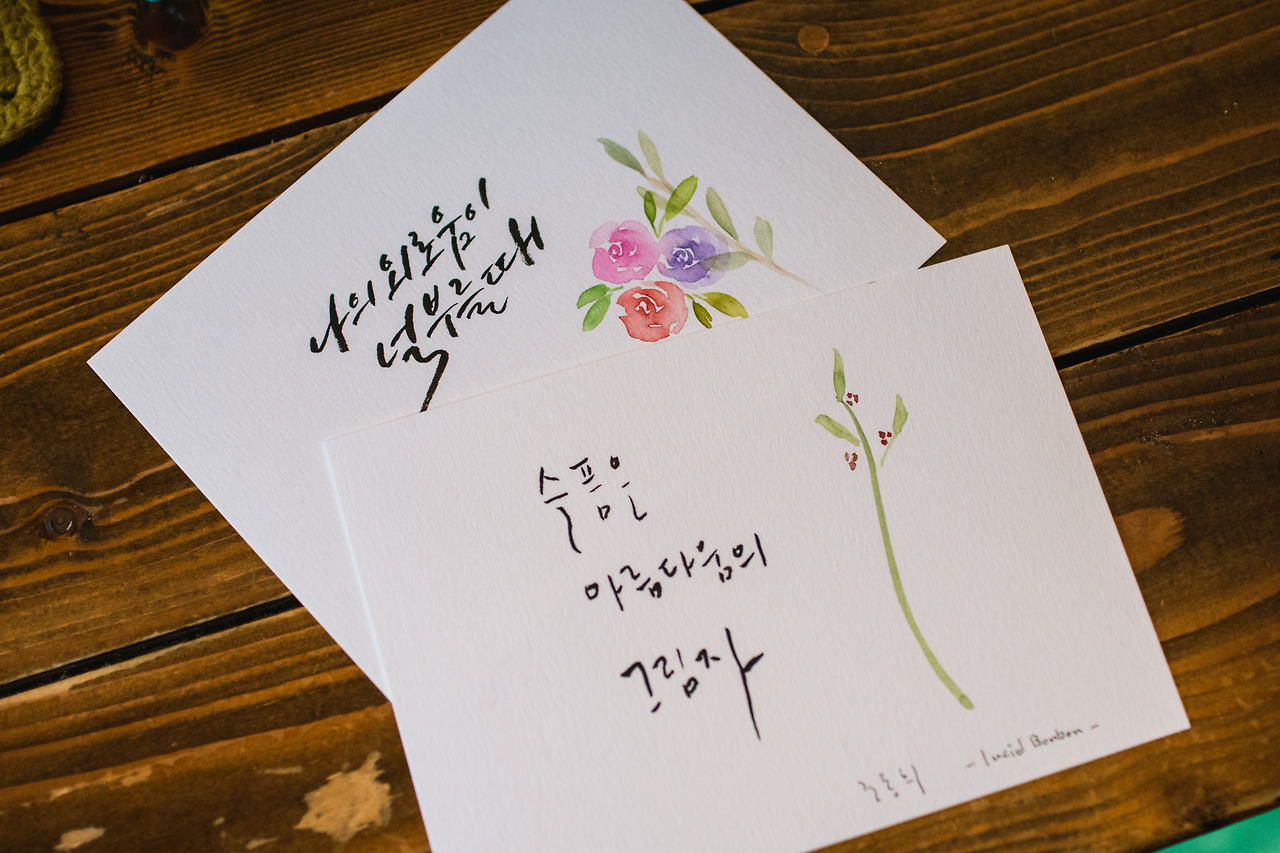 나의 외로움이
널 부를 때
슬픔은
아름다움의
그림자
- lucid Bonbon -